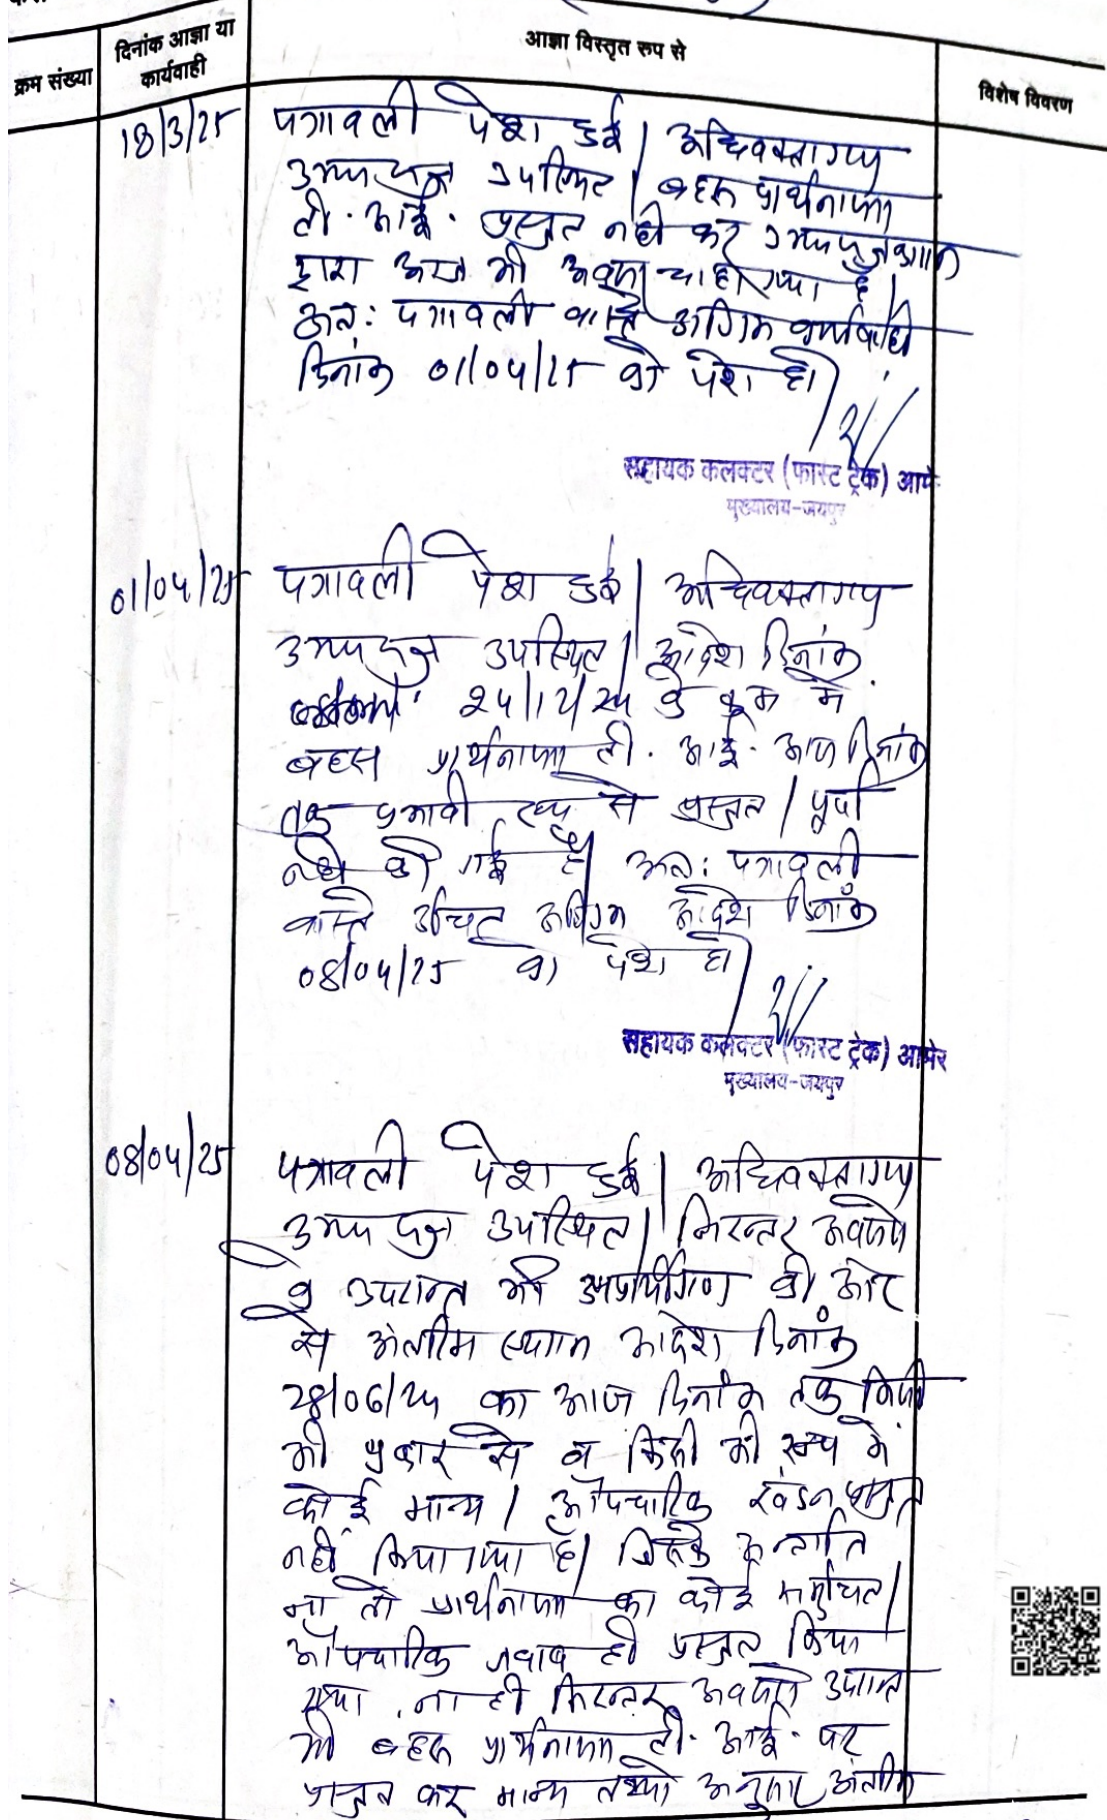 क्रम संख्या
दिनांक आज्ञा या
कार्यवाही
आज्ञा विस्तृत रूप से
विशेष विवरण
18/3/25
पत्रावली पेश हुई। अधिवक्तागण
उभयपक्ष उपस्थित। बहस प्रार्थनापत्र
टी. आई. प्रस्तुत नहीं कर उभयपक्षकारान
द्वारा आज भी अवसर चाहा गया है।
अत: पत्रावली वास्ते अग्रिम कार्यवाही
दिनांक 01/04/25 को पेश हो।
सहायक कलक्टर (फास्ट ट्रेक) आमे
मुख्यालय-जयपुर
01/04/25
पत्रावली पेश हुई। अधिवक्तागण
उभयपक्ष उपस्थित। आदेश दिनांक
24/12/24 के क्रम में
बहस प्रार्थनापत्र टी. आई. आज दिनांक
तक प्रभावी रूप से प्रस्तुत / पूर्ण
नहीं की गई है। अत: पत्रावली
वास्ते उचित अग्रिम आदेश दिनाँक
08/04/25 को पेश हो।
सहायक कलक्टर (फास्ट ट्रेक) आमेर
मुख्यालय-जयपुर
08/04/25
पत्रावली पेश हुई। अधिवक्तागण
उभयपक्ष उपस्थित। निरन्तर अवसरों
के उपरान्त भी अप्रार्थीगण की ओर
से अंतरिम स्थगन आदेश दिनाँक
28/06/24 का आज दिनांक तक किसी
भी प्रकार से व किसी भी रूप में
कोई मान्य / औपचारिक खंडन प्रस्तुत
नहीं किया गया है। जिसके अन्तर्गत
ना तो प्रार्थनापत्र का कोई समुचित /
औपचारिक जवाब ही प्रस्तुत किया
गया, ना ही निरन्तर अवसरों उपरान्त
भी बहस प्रार्थनापत्र टी. आई. पर
प्रस्तुत कर मान्य तथ्यों अनुसार अंतरिम